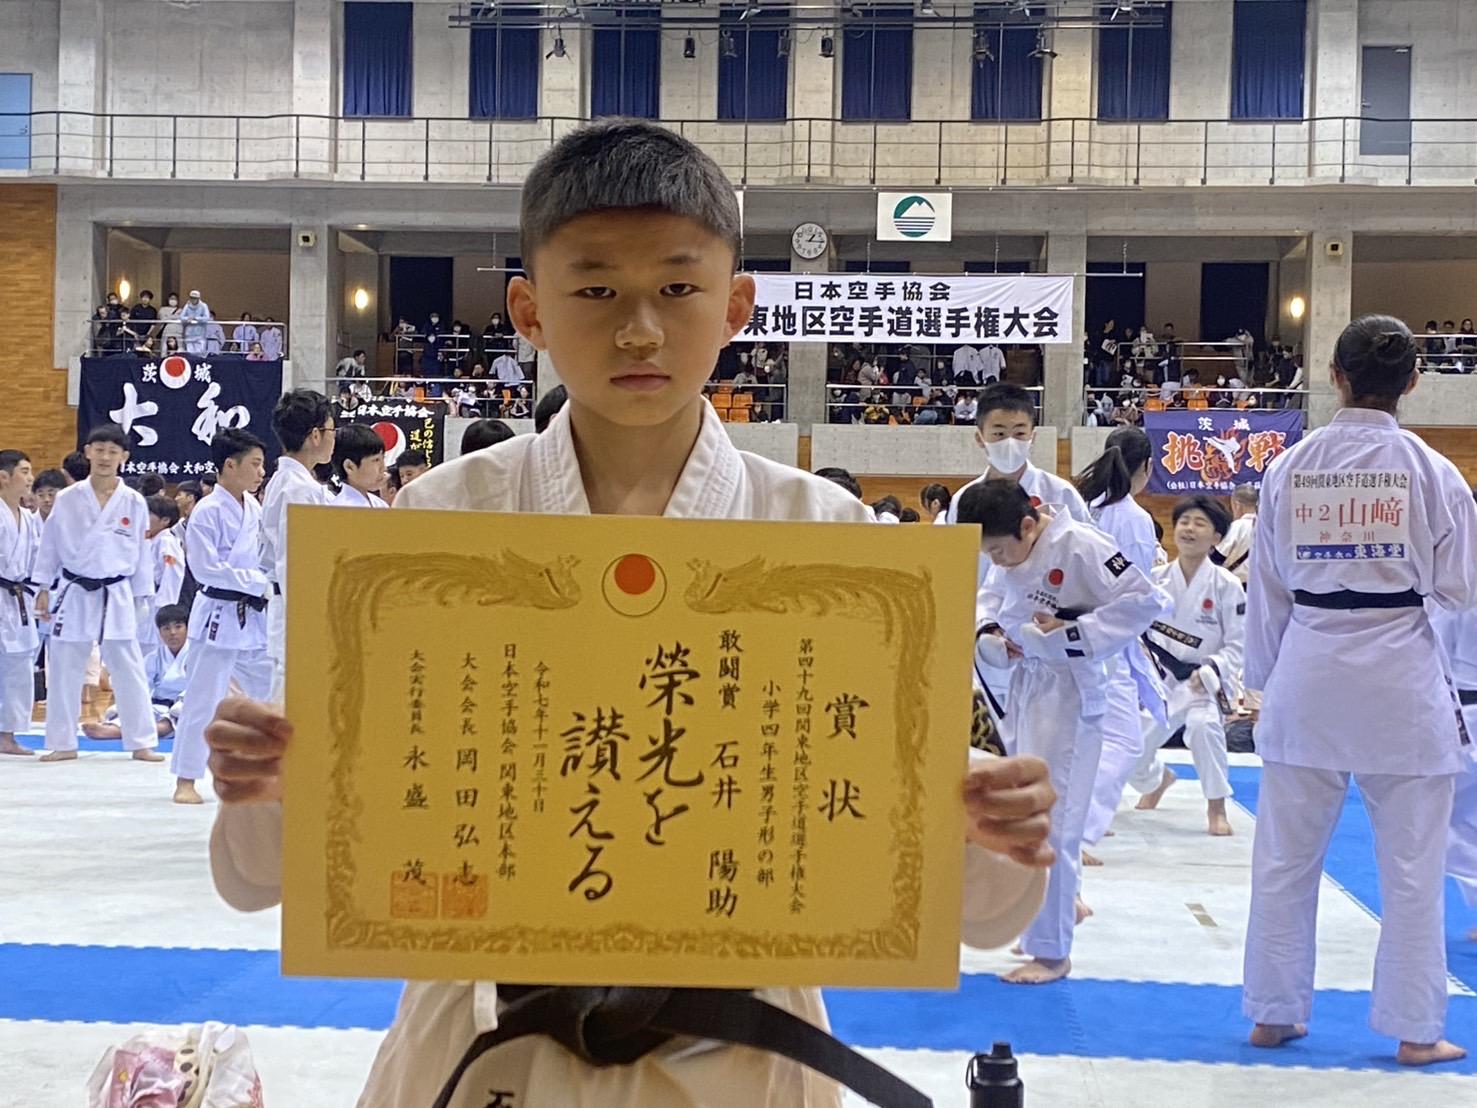 日本空手協会
東地区空手道選手権大会
茨城
大和
日本空手協会 大和空
日本空手協会
己の信じる
道が
茨城
挑戦
(公社)日本空手協会
第49回関東地区空手道選手権大会
中2山﨑
神奈川
空手衣の東海堂
神
賞状
第四十九回関東地区空手道選手権大会
小学四年生男子形の部
敢闘賞 石井 陽助
榮光を
讃える
令和七年十一月三十日
日本空手協会 関東地区本部
大会会長 岡田 弘志
大会実行委員長 永盛 茂